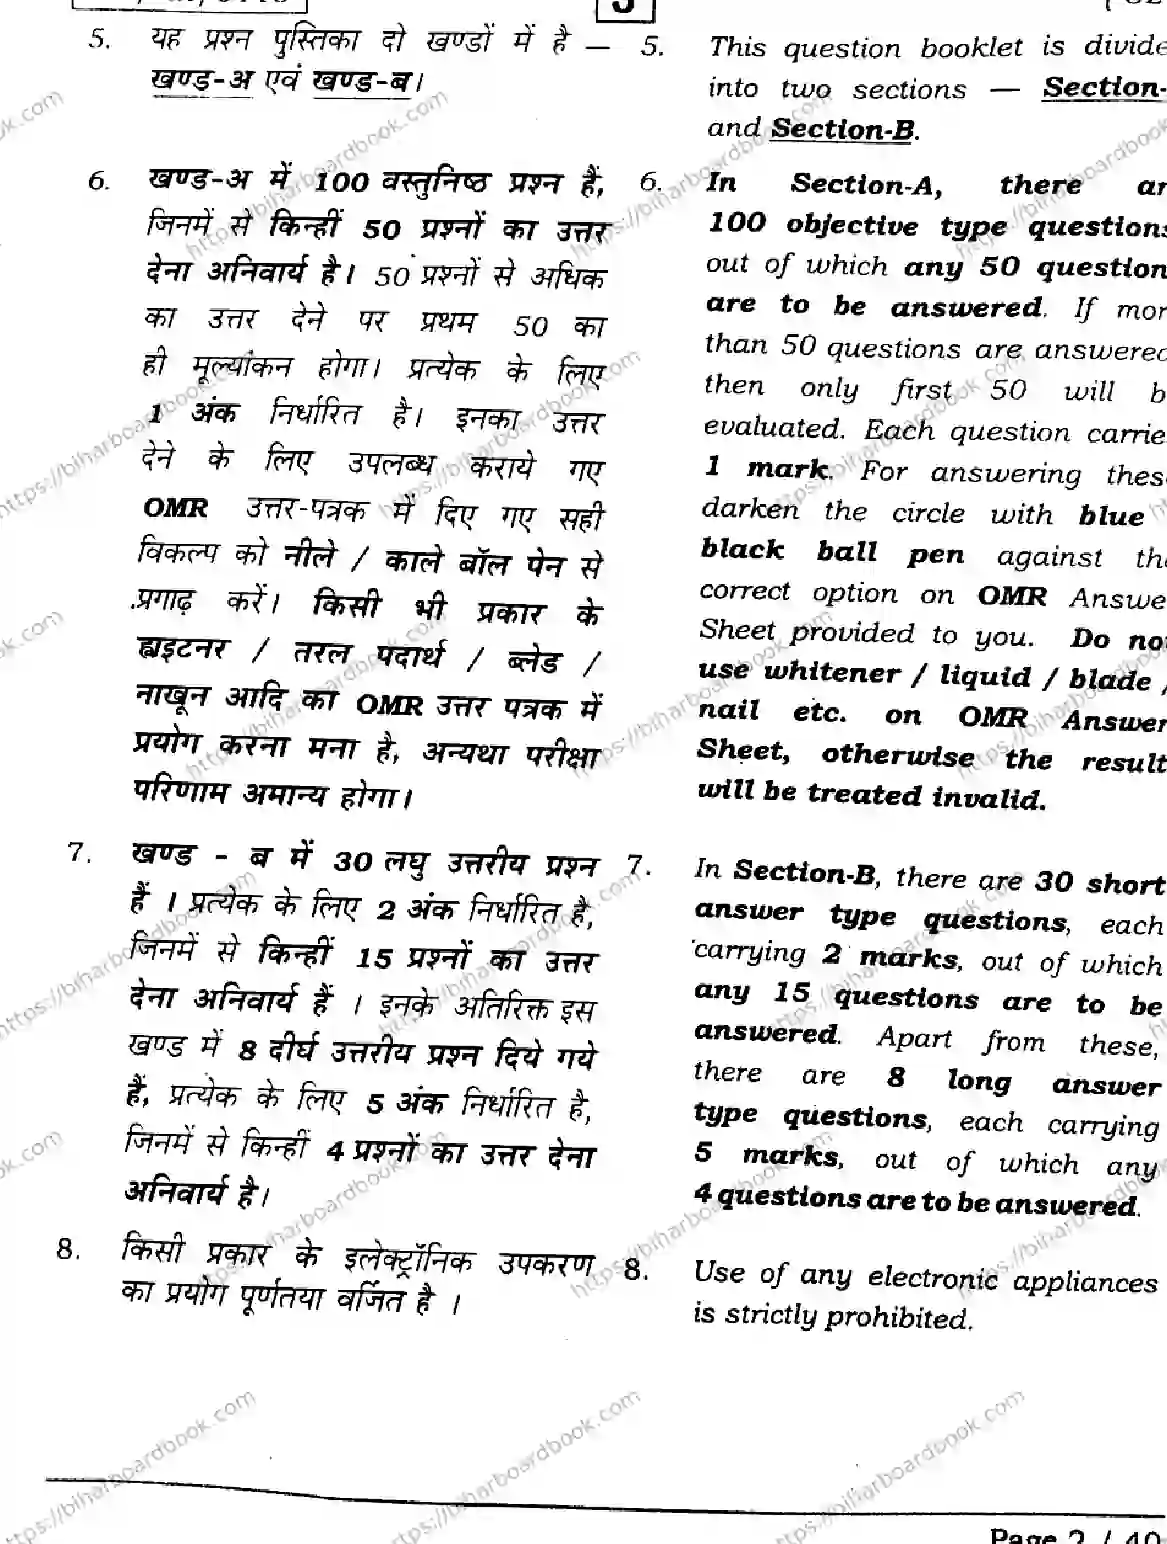 5. यह प्रश्न पुस्तिका दो खण्डों में है —
खण्ड-अ एवं खण्ड-ब।
6. खण्ड-अ में 100 वस्तुनिष्ठ प्रश्न हैं,
जिनमें से किन्हीं 50 प्रश्नों का उत्तर
देना अनिवार्य है। 50 प्रश्नों से अधिक
का उत्तर देने पर प्रथम 50 का
ही मूल्यांकन होगा। प्रत्येक के लिए
1 अंक निर्धारित है। इनका उत्तर
देने के लिए उपलब्ध कराये गए
OMR उत्तर-पत्रक में दिए गए सही
विकल्प को नीले / काले बॉल पेन से
प्रगाढ़ करें। किसी भी प्रकार के
ह्वाइटनर / तरल पदार्थ / ब्लेड /
नाखून आदि का OMR उत्तर पत्रक में
प्रयोग करना मना है, अन्यथा परीक्षा
परिणाम अमान्य होगा।
7. खण्ड - ब में 30 लघु उत्तरीय प्रश्न
हैं । प्रत्येक के लिए 2 अंक निर्धारित है,
जिनमें से किन्हीं 15 प्रश्नों का उत्तर
देना अनिवार्य हैं । इनके अतिरिक्त इस
खण्ड में 8 दीर्घ उत्तरीय प्रश्न दिये गये
हैं, प्रत्येक के लिए 5 अंक निर्धारित है,
जिनमें से किन्हीं 4 प्रश्नों का उत्तर देना
अनिवार्य है।
8. किसी प्रकार के इलेक्ट्रॉनिक उपकरण
का प्रयोग पूर्णतया वर्जित है ।
5. This question booklet is divide
into two sections — Section-
and Section-B.
6. In Section-A, there ar
100 objective type questions
out of which any 50 question
are to be answered. If mor
than 50 questions are answered
then only first 50 will b
evaluated. Each question carrie
1 mark. For answering thes
darken the circle with blue
black ball pen against th
correct option on OMR Answe
Sheet provided to you. Do not
use whitener / liquid / blade /
nail etc. on OMR Answer
Sheet, otherwise the result
will be treated invalid.
7. In Section-B, there are 30 short
answer type questions, each
carrying 2 marks, out of which
any 15 questions are to be
answered. Apart from these,
there are 8 long answer
type questions, each carrying
5 marks, out of which any
4 questions are to be answered.
8. Use of any electronic appliances
is strictly prohibited.
Page 2 / 40
https://biharboardbook.com